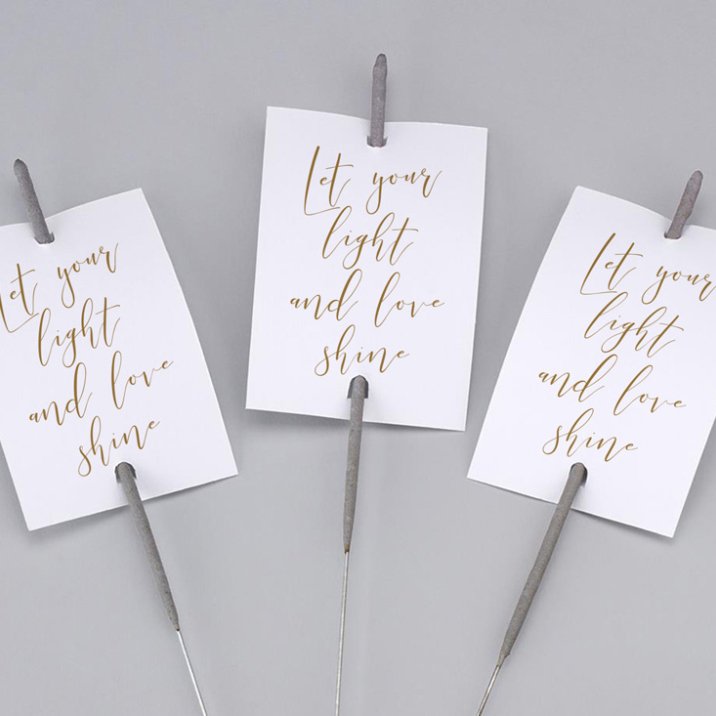 Let your
light
and love
shine
Let your
light
and love
shine
Let your
light
and love
shine